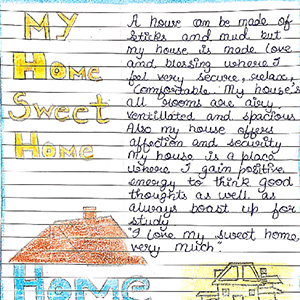 My
Home
Sweet
Home
A house can be made of
sticks and mud but
my house is made love
and blessing where I
feel very secure, relax,
Comfortable. My house's
all rooms are airy,
ventillated and spacious
Also my house offers
affection and security
My house is a place
where I gain positive
energy to think good
thoughts as well as
always boast up for
study.
"I love my sweet home
very much".
Home